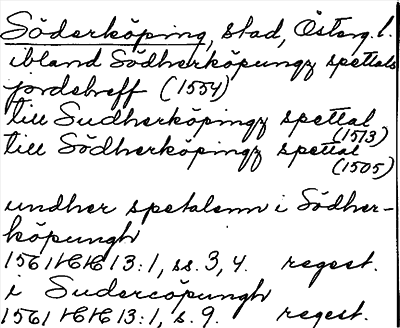 Söderköping, stad, Österg. l.
ibland Södherköpungz spettals
jordetreff (1554)
till Sudherköpingz spettal
(1513)
till Södherköpingz spettal
(1505)
undher spetalenn i Södher-
köpungh
1561 HH 13:1, ss. 3, 4. regest.
i Sudercöpungh
1561 HH 13:1, s. 9. regest.